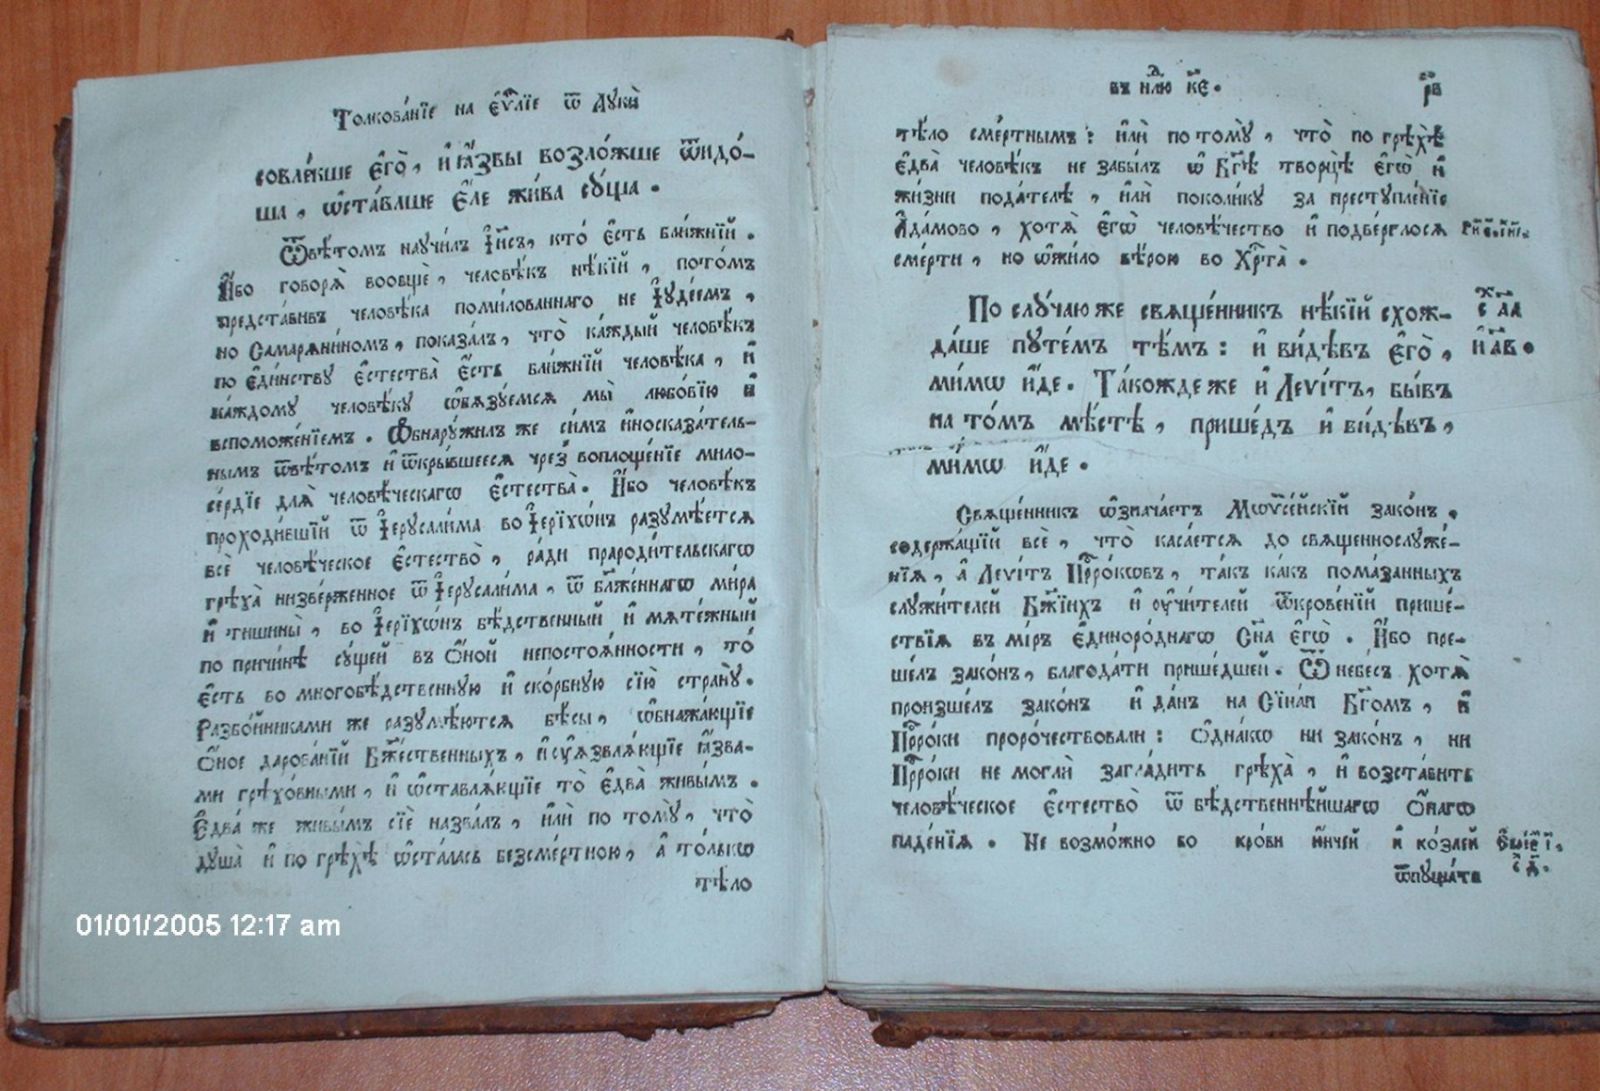 Толкова́нїе на Є҆ѵⷢ҇лїе ѿ Лꙋкѝ
совле́кше є҆го̀, и҆ ꙗ҆́звы возло́жше ѿидо́-
ша, ѡ҆ста́вльше є҆ле жи́ва сꙋ́ща.
Ѿвѣ́томъ научи́лъ І҆и҃съ, кто̀ є҆сть бли́жнїй.
И҆́бо говоря̀ вообщѐ, человѣ́къ нѣ́кїй, пото́мъ
предста́вивъ человѣ́ка поми́лованнаго не І҆ꙋде́емъ,
но Самаряни́номъ, показа́лъ, что̀ ка́ждый человѣ́къ
по є҆ди́нству є҆стества̀ є҆сть бли́жнїй человѣ́ка, и҆
ка́ждому человѣ́ку ѡ҆бя́зуемся мы̀ любо́вїю и҆
вспоможе́нїемъ. Ѡ҆бнарꙋ́жилъ же си́мъ и҆носказа́тель-
нымъ ѿвѣ́томъ и҆ ѿкры́вшееся чрез̾ воплоще́нїе мило-
се́рдїе для̀ человѣ́ческагѡ є҆стества̀. И҆́бо человѣ́къ
проходи́вшїй ѿ І҆ерꙋсали́ма во І҆ерїхѡ́нъ разꙋмѣ́ется
всѐ человѣ́ческое є҆стество̀, ра́ди прароди́тельскагѡ
грѣха̀ низве́рженное ѿ І҆ерꙋсали́ма, ѿ бл҃же́ннагѡ ми́ра
и҆ тишины̀, во І҆ерїхѡ́нъ бѣ́дственный и҆ мяте́жный
по причи́нѣ сꙋ́щей въ ѻ҆́ной непостоя́нности, то̀
є҆сть во многобѣ́дственную и҆ ско́рбную сїю̀ странꙋ̀.
Разбо́йниками же разꙋмѣ́ются бѣ́сы, ѡ҆бнажа́ющїе
ѻ҆́ное дарова́нїй Бж҃е́ственныхъ, и҆ ᲂу҆язвля́ющїе ꙗ҆́зва-
ми грѣхо́вными, и҆ ѡ҆ставля́ющїе то̀ є҆два̀ живы́мъ.
Є҆два̀ же живы́мъ сїѐ назва́лъ, и҆лѝ по томꙋ̀, что̀
душа̀ и҆ по грѣхѣ̀ ѡ҆ста́лась безсме́ртною, а҆ то́лькѡ
тѣ́ло
въ нⷣлю к҃є.
р҃в
тѣ́ло сме́ртнымъ: и҆лѝ по томꙋ̀, что̀ по грѣхѣ̀
є҆два̀ человѣ́къ не забы́лъ ѡ҆ Бг҃ѣ творцѣ̀ є҆гѡ̀ и҆
жи́зни пода́телѣ, и҆лѝ поколи́ку за преступле́нїе
А҆да́мово, хотя̀ є҆гѡ̀ человѣ́чество и҆ подве́рглося
сме́рти, но ѡ҆жи́ло вѣ́рою во Хрⷭ҇та̀.
По слꙋ́чаю же свяще́нникъ нѣ́кїй схож-
да́ше пꙋте́мъ тѣ́мъ: и҆ ви́дѣвъ є҆го̀,
ми́мѡ и҆́де. Та́кожде же и҆ Леѵі́тъ, бы́въ
на то́мъ мѣ́стѣ, прише́дъ и҆ ви́дѣвъ,
ми́мѡ и҆́де.
ст҃ \ ла҃
и҆ л҃в.
Свяще́нникъ ѡ҆знача́етъ Мѡѷсе́йскїй зако́нъ,
содержа́щїй всѐ, что̀ каса́ется до священнослуже́-
нїя, а҆ Леѵі́тъ Прⷪ҇ро́кѡвъ, та́къ ка́къ пома́занныхъ
служи́телей Бж҃їихъ и҆ ᲂу҆чи́телей ѿкрове́нїй прише́-
ствїя въ мі́ръ є҆диноро́днагѡ Сн҃а є҆гѡ̀. И҆́бо пре-
ше́лъ зако́нъ, благода́ти прише́дшей. Ѿ небе́съ хотя̀
произше́лъ зако́нъ и҆ да́нъ на Сїна́и Бг҃омъ, и҆
Прⷪ҇ро́ки проро́чествовали: ѻ҆дна́кѡ ни зако́нъ, ни
Прⷪ҇ро́ки не моглѝ загла́дить грѣха̀, и҆ возста́вить
человѣ́ческое є҆стество̀ ѿ бѣ́дственнѣйшагѡ ѻ҆́нагѡ
паде́нїя. Не возмо́жно бо кро́ви ю҆нче́й и҆ козле́й
ѿпꙋща́ти